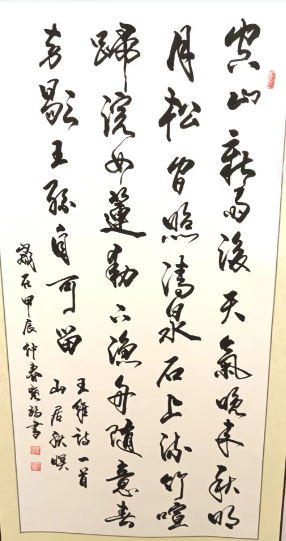 空山新雨後天氣晚來秋明
月松間照清泉石上流竹喧
歸浣女蓮動下漁舟隨意春
芳歇王孫自可留
王維詩一首
山居秋暝
歲在甲辰仲春書